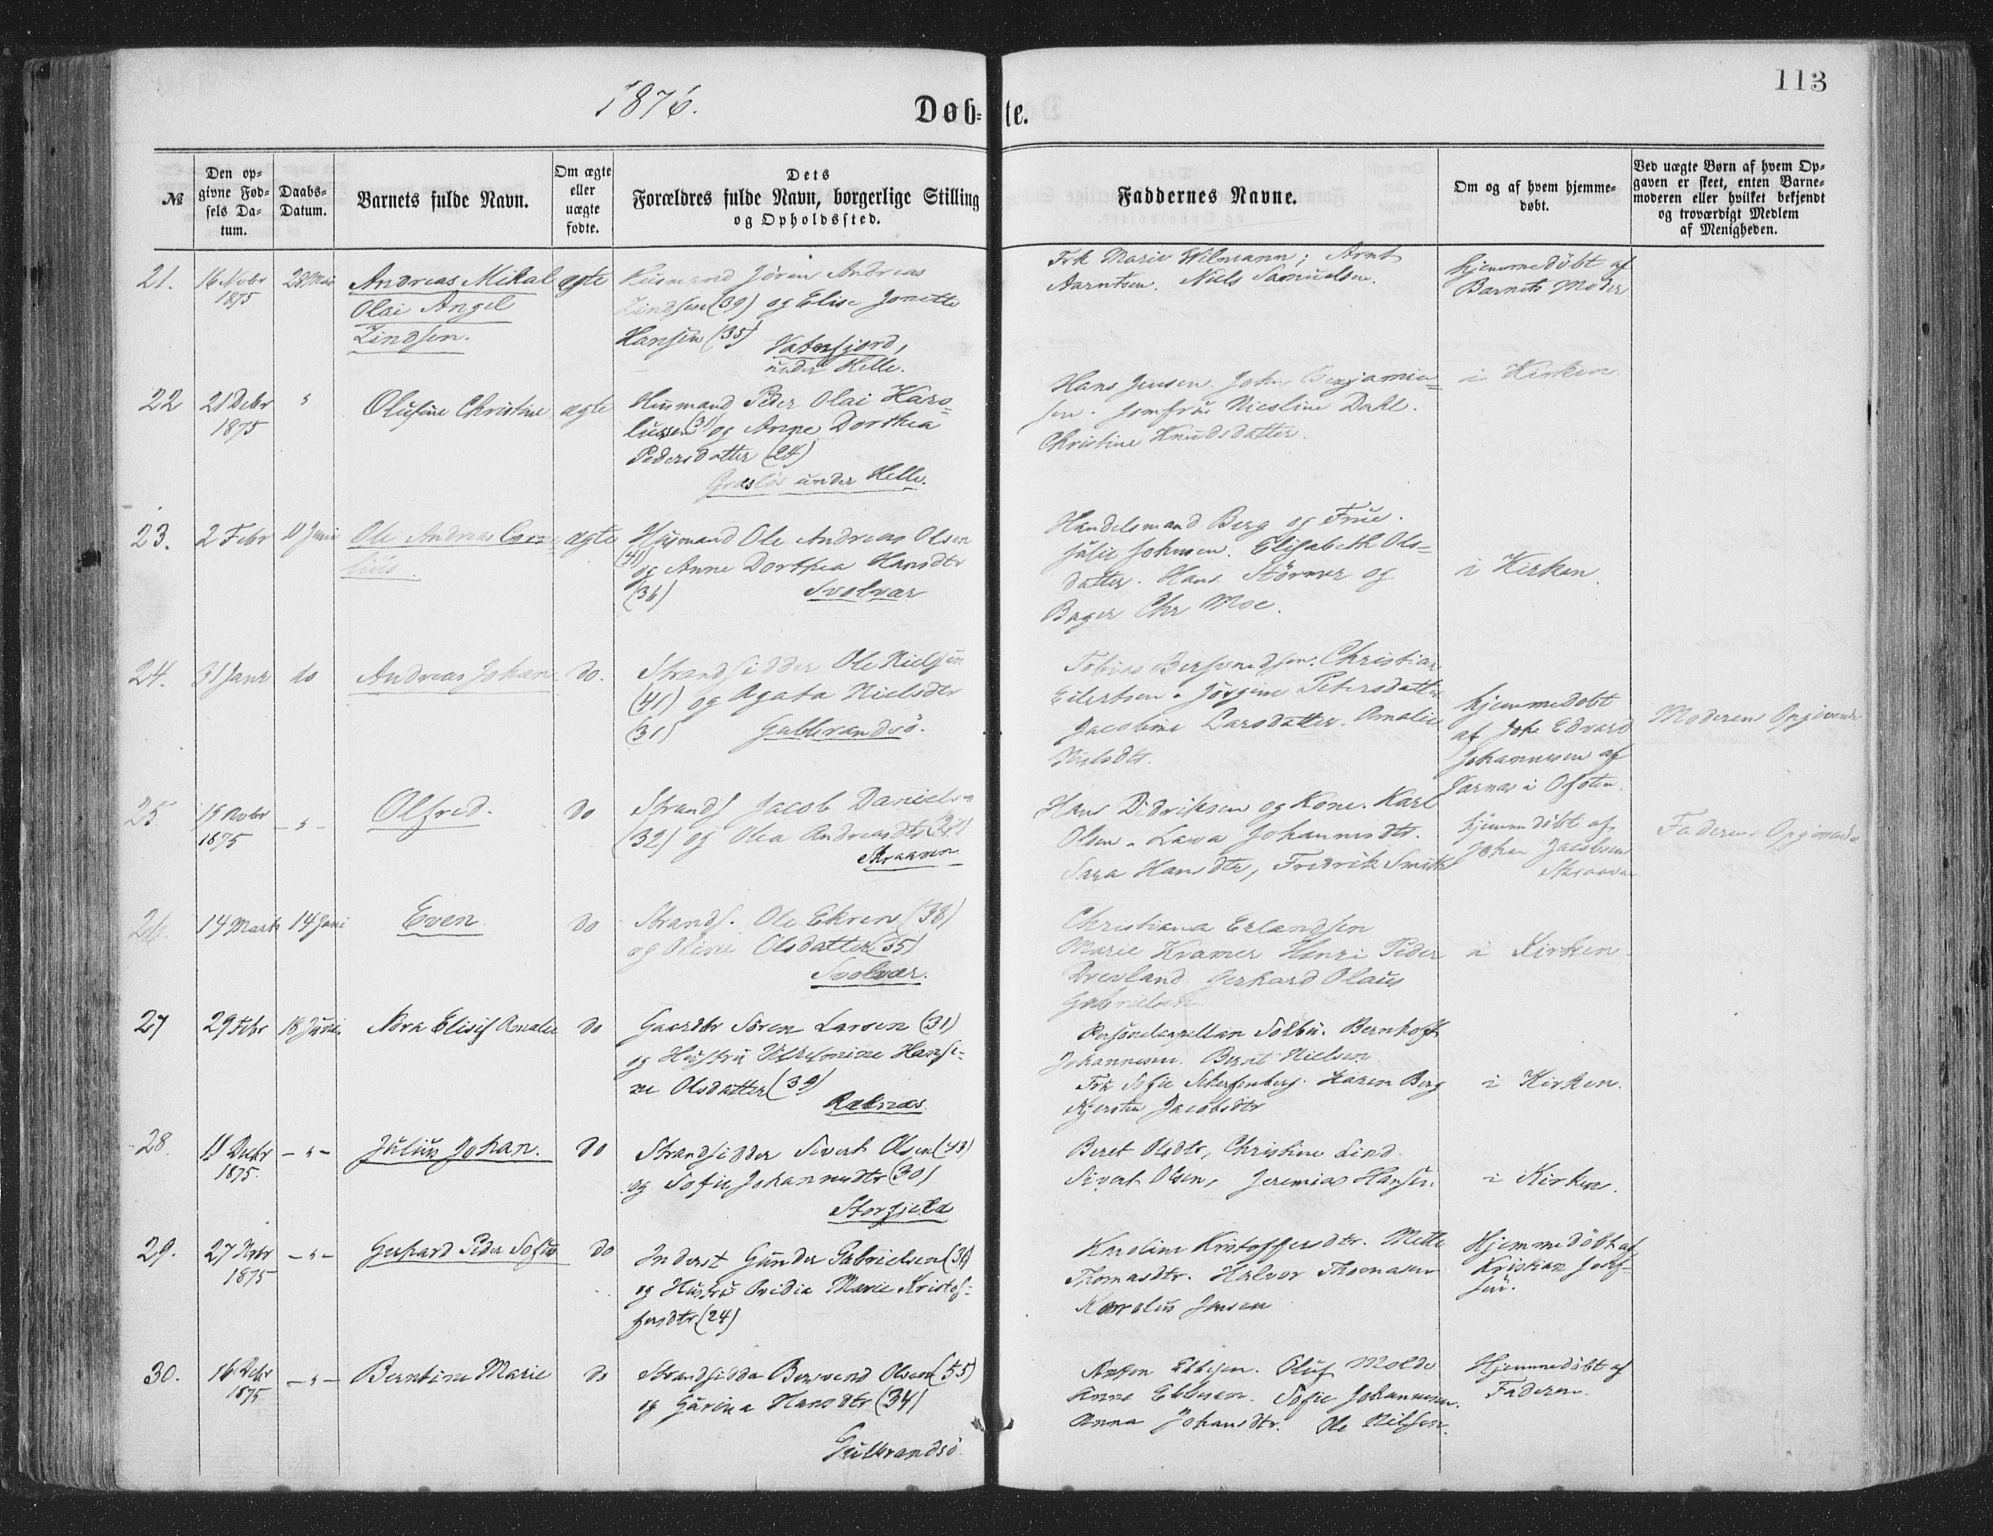 1876.
Døbte.
113
№
Den opgivne Fødsels Datum.
Daabs-Datum.
Barnets fulde Navn.
Om ægte eller uægte fødte.
Dets Forældres fulde Navn, borgerlige Stilling og Opholdssted.
Faddernes Navne.
Om og af hvem hjemmedøbt.
Ved uægte Børn af hvem Opgaven er skeet, enten Barnemoderen eller hvilket bekjendt og troværdigt Medlem af Menigheden.
21.
16 Novbr
1875
28 Mai
Andreas Mikal
Olai Angel
Zindsen.
ægte
Husmand Jøren Andreas
Zindsen (39) og Elise Jonette
Hansen (35)
Vatnfjord,
under Helle.
Frk Marie Wilmann; Arnt
Aarntsen. Niels Samuelsen.
Hjemmedøbt af
Barnets Moder
22
21 Debr
1875
"
Olufine Christine
ægte
Husmand Peder Olai Karo-
lussen (31) og Anne Dorthea
Pedersdatter (24)
under Helle.
Hans Jensen. John Benjamin-
sen. Jomfrue Nicoline Dahl.
Christine Knudsdatter.
i Kirken.
23.
2 Febr
11 Juni
Ole Andreas Cor
ægte
Husmand Ole Andreas Olsen
(41)
og Anne Dorthea Hansdtr
(36)
Svolvær
Handelsmand Berg og Frue.
Julie Johnsen. Elisabeth Ols-
datter. Hans Störmer og
Bager Chr Moe.
i Kirken.
24.
31 Janr
do
Andreas Johan
do.
Strandsidder Ole Nielsen
(41) og Agata Nielsdtr
(31)
Gulbrandsø.
Tobias Berntsen. Christian
Eilertsen. Jørgine Petersdatter
Jacobine Larsdatter. Amalie
Nielsdtr.
hjemmedøbt
af Joh. Edvard
Johannesen af
i Ofoten.
Moderens Opgivende
25.
15 Novbr
1875
- " -
Olfred.
do
Strands Jacob Daniels
(32) og Olea Andreasdtr
Skraaven
Hans Didriksen og Kone. Karl
Olsen. Lava Johannesdtr.
Sara Hansdtr, Fredrik Smith
hjemmedøbt af
Johan Jacobsen
Skraaven
Faderens Opgivende
26.
14 Marts
14 Juni
Even.
do
Strands. Ole Ekren (38)
og Oline Olsdatter (35)
Svolvær.
Christiana Erlandsen
Marie Kramer Henri Peder
Drevland Gerhard Olaus
Gabrielsen
i Kirken.
27
29 Febr
18 Juni
Nora Elisif Amalie
do
Gaardbr Søren Larsen (31)
og Hustru Vilhelmine Hansi-
ne Olsdatter (39)
Reknæs.
Personelcapellan Solbu. Bernhoft
Johannesen. Bernt Nielsen
Frk Sofie Scherfenberg. Karen Berg
Kjersten Jacobsdtr
i Kirken.
28.
11 Debr
1875.
- " -
Julius Johan.
do
Strandsidder Sivert Olsen (43)
og Sofie Johannesdtr (30)
Storfjeld
Beret Olsdtr, Christine Lind
Sivert Olsen, Jeremias Hansen.
i Kirken.
29.
27 Novbr
1875
- " -
Gerhard Peder Sofus
do
Inderst Gunder Gabrielsen
og Hustru Ovidia Marie Kristof-
fersdtr (24)
Karoline Kristoffersdtr. Mette
Thomasdtr. Halvor Thomasen
Karolus Jensen
Hjemmedøbt af
Kristian Josef-
sen.
30.
16 Debr
1875
- " -
Berntine Marie
do
Strandsidder Berend Olsen (35)
og Gurina Hansdtr (34)
Gulbrandsø
Anton Ebbesen. Oluf Molde
Anne Ebbesen. Sofie Johannesen.
Anna Johansdtr. Ole Nilsen.
Hjemmedøbt af
Faderen.